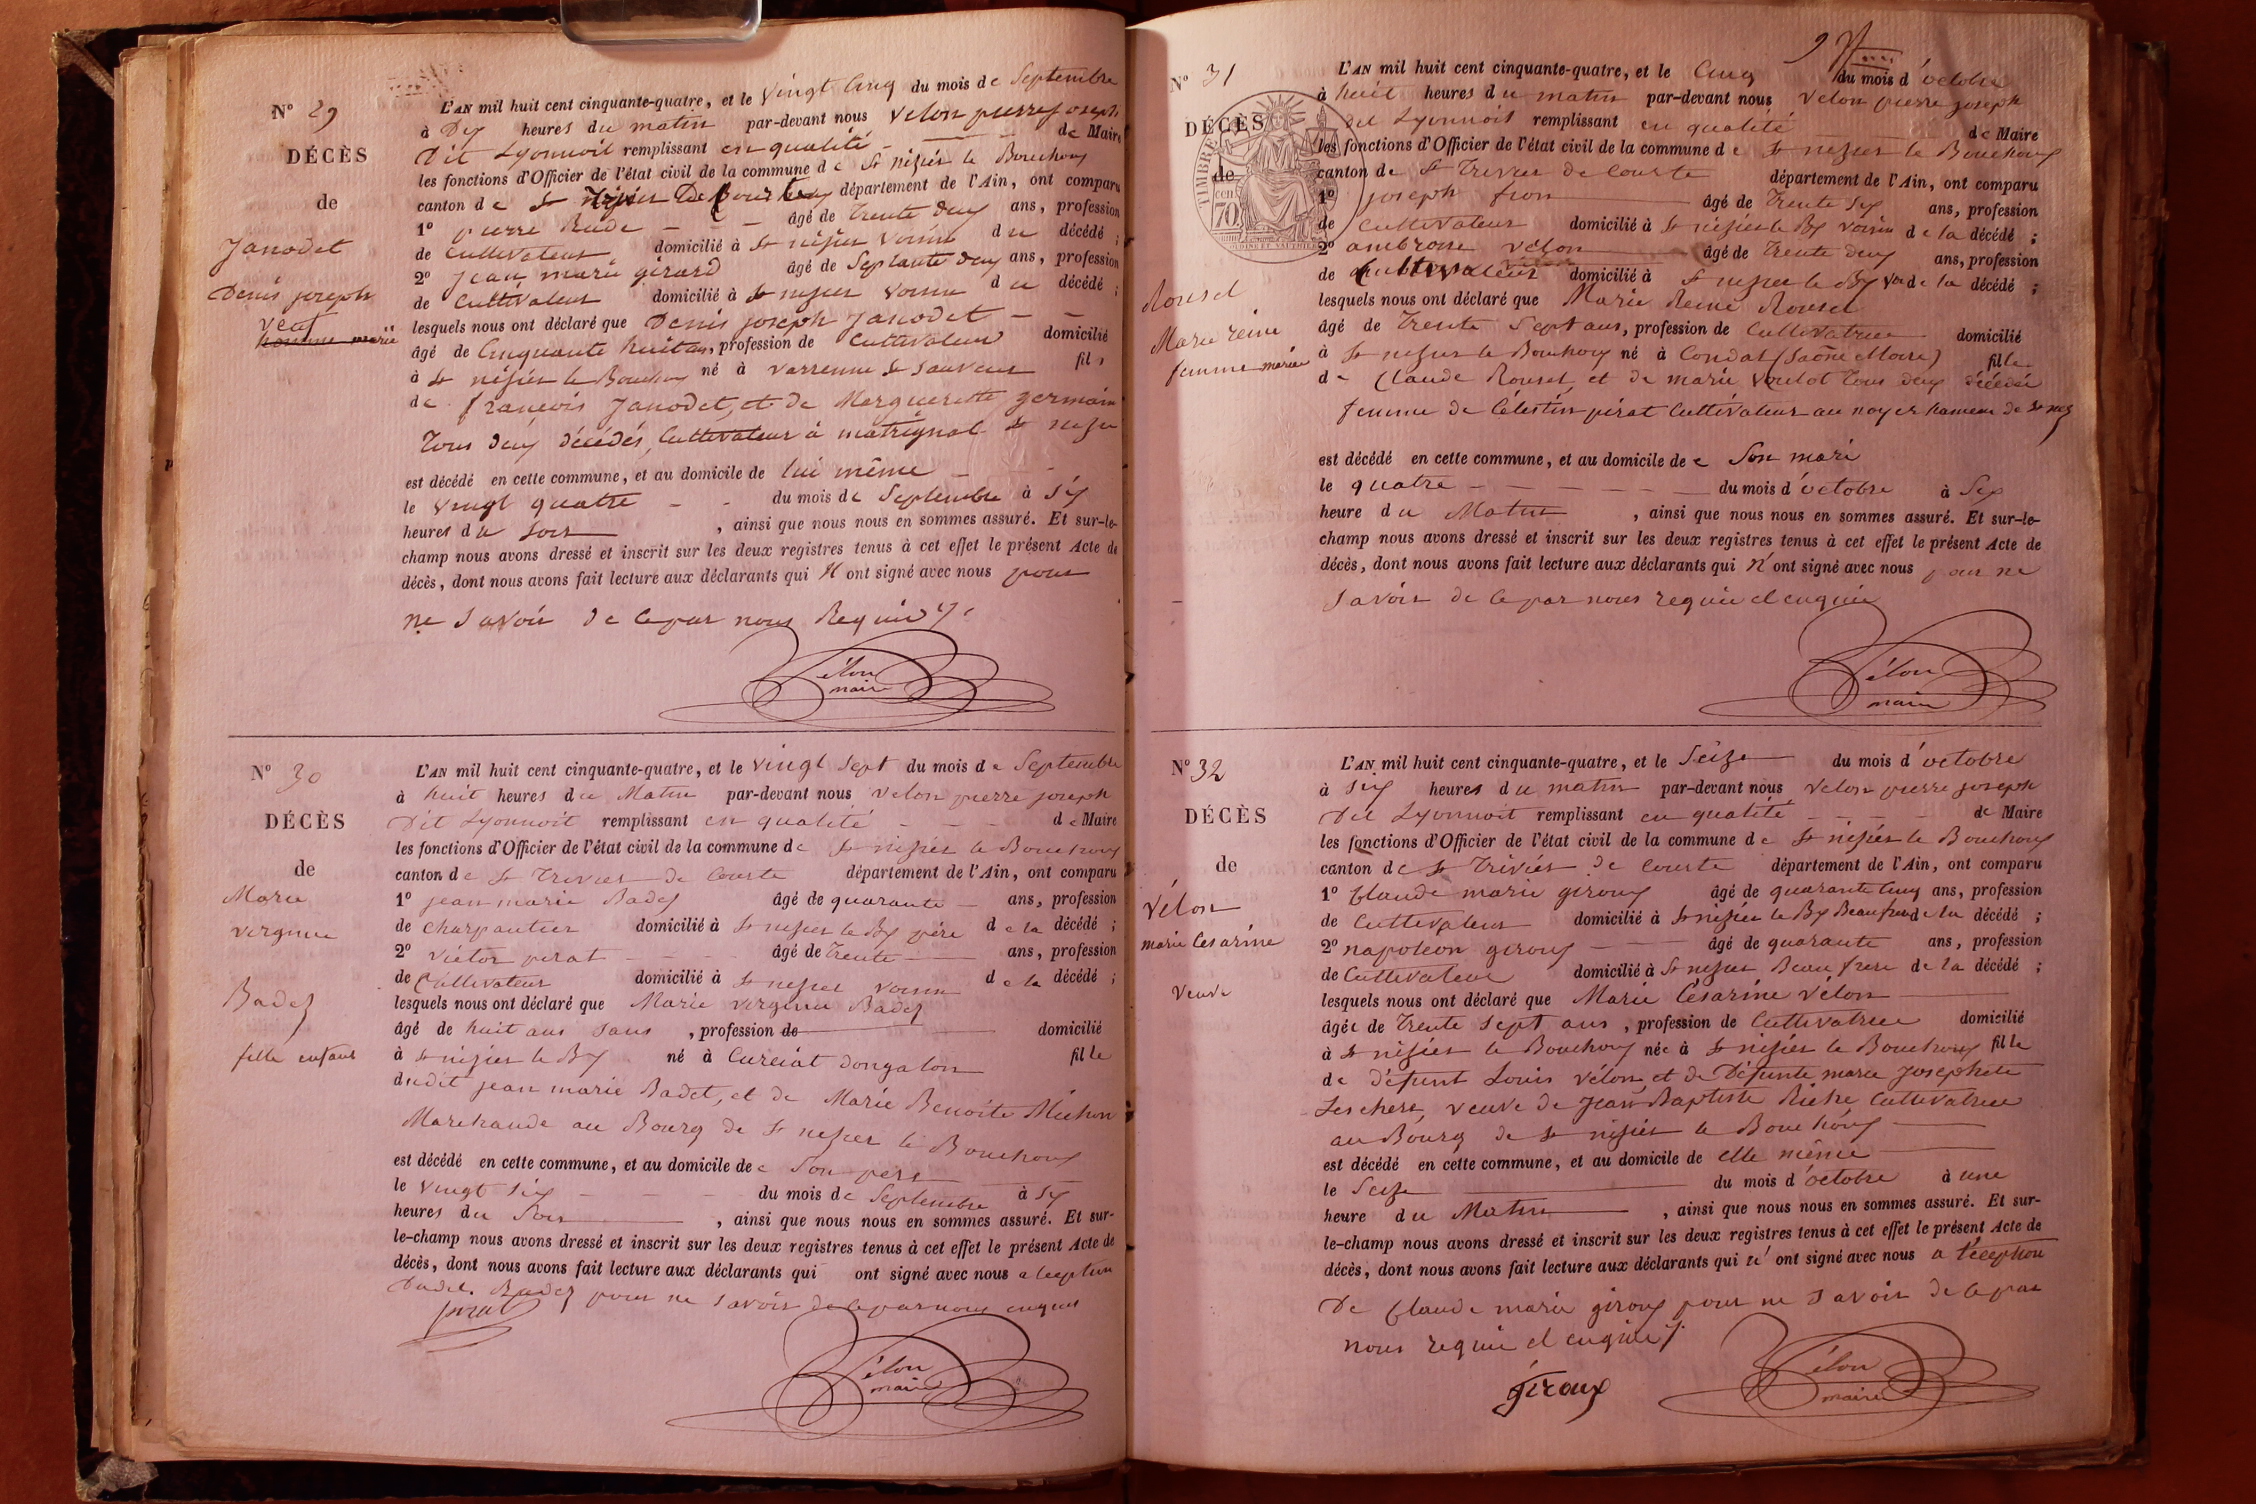 N° 29
DÉCÈS
de
Janodet
Denis joseph
veuf
homme marié
L'AN mil huit cent cinquante-quatre, et le vingt Cinq du mois de Septembre
à Dix heures du matin par-devant nous Velon pierre joseph
Dit Lyonnoit remplissant en qualité de Maire
les fonctions d'Officier de l'état civil de la commune de St nizier le Bouchoux
canton de St département de l'Ain, ont comparu
1° pierre Rude âgé de trente deux ans, profession
de Cultivateur domicilié à St nizier voisin du décédé ;
2° Jean marie girard âgé de Septante deux ans, profession
de Cultivateur domicilié à St nizier voisin du décédé ;
lesquels nous ont déclaré que Denis joseph Janodet
âgé de Cinquante huit ans, profession de Cultivateur domicilié
à St nizier le Bouchoux né à varrenne St Sauveur fils
de françois Janodet, et de Marguerette germain
Tous deux décédés, Cultivateur à matrignat St nizier
est décédé en cette commune, et au domicile de lui même
le vingt quatre du mois de Septembre à Six
heures du Soir , ainsi que nous nous en sommes assuré. Et sur-le-
champ nous avons dressé et inscrit sur les deux registres tenus à cet effet le présent Acte de
décès, dont nous avons fait lecture aux déclarants qui N ont signé avec nous pour
ne Savoir de ce par nous Requis
Vélon
maire
N° 30
DÉCÈS
de
Marie
virginie
Badez
fille enfant
L'AN mil huit cent cinquante-quatre, et le vingt Sept du mois de Septembre
à huit heures du Matin par-devant nous Velon pierre joseph
Dit Lyonnoit remplissant en qualité de Maire
les fonctions d'Officier de l'état civil de la commune de St nizier le Bouchoux
canton de St Trivier de Courte département de l'Ain, ont comparu
1° jean marie Badez âgé de quarante ans, profession
de Charpantier domicilié à St nizier le Bx père de la décédé ;
2° victor pirat âgé de Trente ans, profession
de Cultivateur domicilié à St nizier voisin de la décédé ;
lesquels nous ont déclaré que Marie virginie Badez
âgé de huit ans sans , profession de domicilié
à St nizier le Bx né à Curciat dongalon fille
dudit jean marie Badet, et de Marie Benoite Michon
Marchande au Bourg de St nizier le Bouchoux
est décédé en cette commune, et au domicile de Son père
le vingt Six du mois de Septembre à Six
heures du Soir , ainsi que nous nous en sommes assuré. Et sur-
le-champ nous avons dressé et inscrit sur les deux registres tenus à cet effet le présent Acte de
décès, dont nous avons fait lecture aux déclarants qui ont signé avec nous
Badez pour ne Savoir de ce par nous enquis
pirat
Vélon
maire
N° 31
DÉCÈS
de
Rousel
Marie reine
femme mariée
TIMBRE
70
L'AN mil huit cent cinquante-quatre, et le Cinq du mois d'octobre
à huit heures du matin par-devant nous Velon pierre joseph
dit Lyonnoit remplissant en qualité de Maire
les fonctions d'Officier de l'état civil de la commune de St nizier le Bouchoux
canton de St Trivier de Courte département de l'Ain, ont comparu
1° joseph fion âgé de Trente Six ans, profession
de Cultivateur domicilié à St nizier le Bx voisin de la décédé ;
2° ambroise vélon âgé de Trente deux ans, profession
de Cultivateur domicilié à St nizier le Bx voi de la décédé ;
lesquels nous ont déclaré que Marie Reine Rousel
âgé de Trente Sept ans, profession de Cultivatrice domicilié
à St nizier le Bouchoux né à Condat (Saône et Loire) fille
de Claude Rousel, et de marie voulot tous deux décédés
femme de Célestin pirat Cultivateur au noyer hameau de St niz
est décédé en cette commune, et au domicile de Son mari
le quatre du mois d'octobre à Six
heure du Matin , ainsi que nous nous en sommes assuré. Et sur-le-
champ nous avons dressé et inscrit sur les deux registres tenus à cet effet le présent Acte de
décès, dont nous avons fait lecture aux déclarants qui n'ont signé avec nous pour ne
Savoir de ce par nous requis et enquis
Vélon
maire
N° 32
DÉCÈS
de
Vélon
marie Césarine
veuve
L'AN mil huit cent cinquante-quatre, et le Seize du mois d'octobre
à Six heures du matin par-devant nous Velon pierre joseph
Dit Lyonnoit remplissant en qualité de Maire
les fonctions d'Officier de l'état civil de la commune de St nizier le Bouchoux
canton de St Trivier de Courte département de l'Ain, ont comparu
1° Claude marie giroux âgé de quarante Cinq ans, profession
de Cultivateur domicilié à St nizier le Bx Beaufrere de la décédé ;
2° napoleon giroux âgé de quarante ans, profession
de Cultivateur domicilié à St nizier Beau frere de la décédé ;
lesquels nous ont déclaré que Marie Césarine Vélon
âgée de Trente Sept ans , profession de Cultivatrice domicilié
à St nizier le Bouchoux née à St nizier le Bouchoux fille
de défunt Louis Vélon, et de Défunte marie Josephete
veuve de Jean Baptiste Riche Cultivatrice
au Bourg de St nizier le Bouchoux
est décédé en cette commune, et au domicile de elle même
le Seize du mois d'octobre à une
heure du Matin , ainsi que nous nous en sommes assuré. Et sur-
le-champ nous avons dressé et inscrit sur les deux registres tenus à cet effet le présent Acte de
décès, dont nous avons fait lecture aux déclarants qui n'ont signé avec nous a léception
De Claude marie giroux pour ne Savoir de ce par
nous requis et enquis
Giroux
Vélon
maire